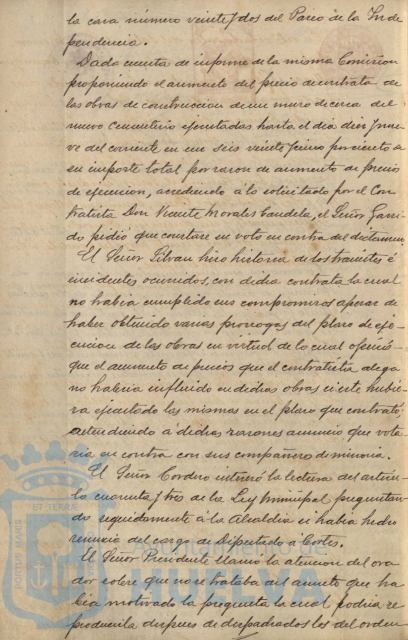 la casa número veinte y dos del Paseo de la Inde
pendencia.
Dada cuenta de informe de la misma Comisión
proponiendo el aumento del precio de contrata de
las obras de construccion de un muro de cerca del
nuevo Cementerio ejecutadas hasta el dia diez y nue
ve del corriente en un seis veinte y cinco por ciento a
su importe total por razon de aumento de precios
de ejecucion, accediendo á lo solicitado por el Con
tratista Don Vicente Morales Candela, el Señor Garri
do pidió que constase su voto en contra del dictamen.
El Señor Silvan hizo historia de los tramites é
incidentes ocurridos, con dicha contrata la cual
no habia cumplido sus compromisos apesar de
haber obtenido varias prorrogas del plazo de eje
cucion de las obras en virtud de lo cual
que el aumento de precios que el contratista alega
no habria influido en dichas obras si este hubie
ra ejecutado las mismas en el plazo que contrató
atendiendo á dichas razones anunció que vota
ria en contra con sus compañeros de minoria.
El Señor Cordero interesó la lectura del articu
lo cuarenta y tres de la Ley Municipal preguntan
do seguidamente á la Alcaldia si habia hecho
renuncia del cargo de Diputado a Cortes.
El Señor Presidente llamó la atencion del ora
dor sobre que no se trataba del asunto que ha
bia motivado la pregunta la cual podria re
producirla despues de despachados los del orden
PORTUS MARIS
ET TERRÆ
Ayuntamiento de
HUELVA